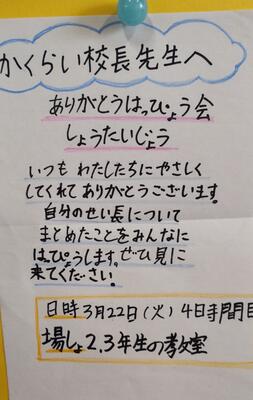 かくらい校長先生へ
ありがとうはっぴょう会
しょうたいじょう
いつもわたしたちにやさしく
してくれてありがとうございます。
自分のせい長について
まとめたことをみんなに
はっぴょうします。ぜひ見に
来てください。
日時3月22日(火)4時間目
場しょ2,3年生の教室